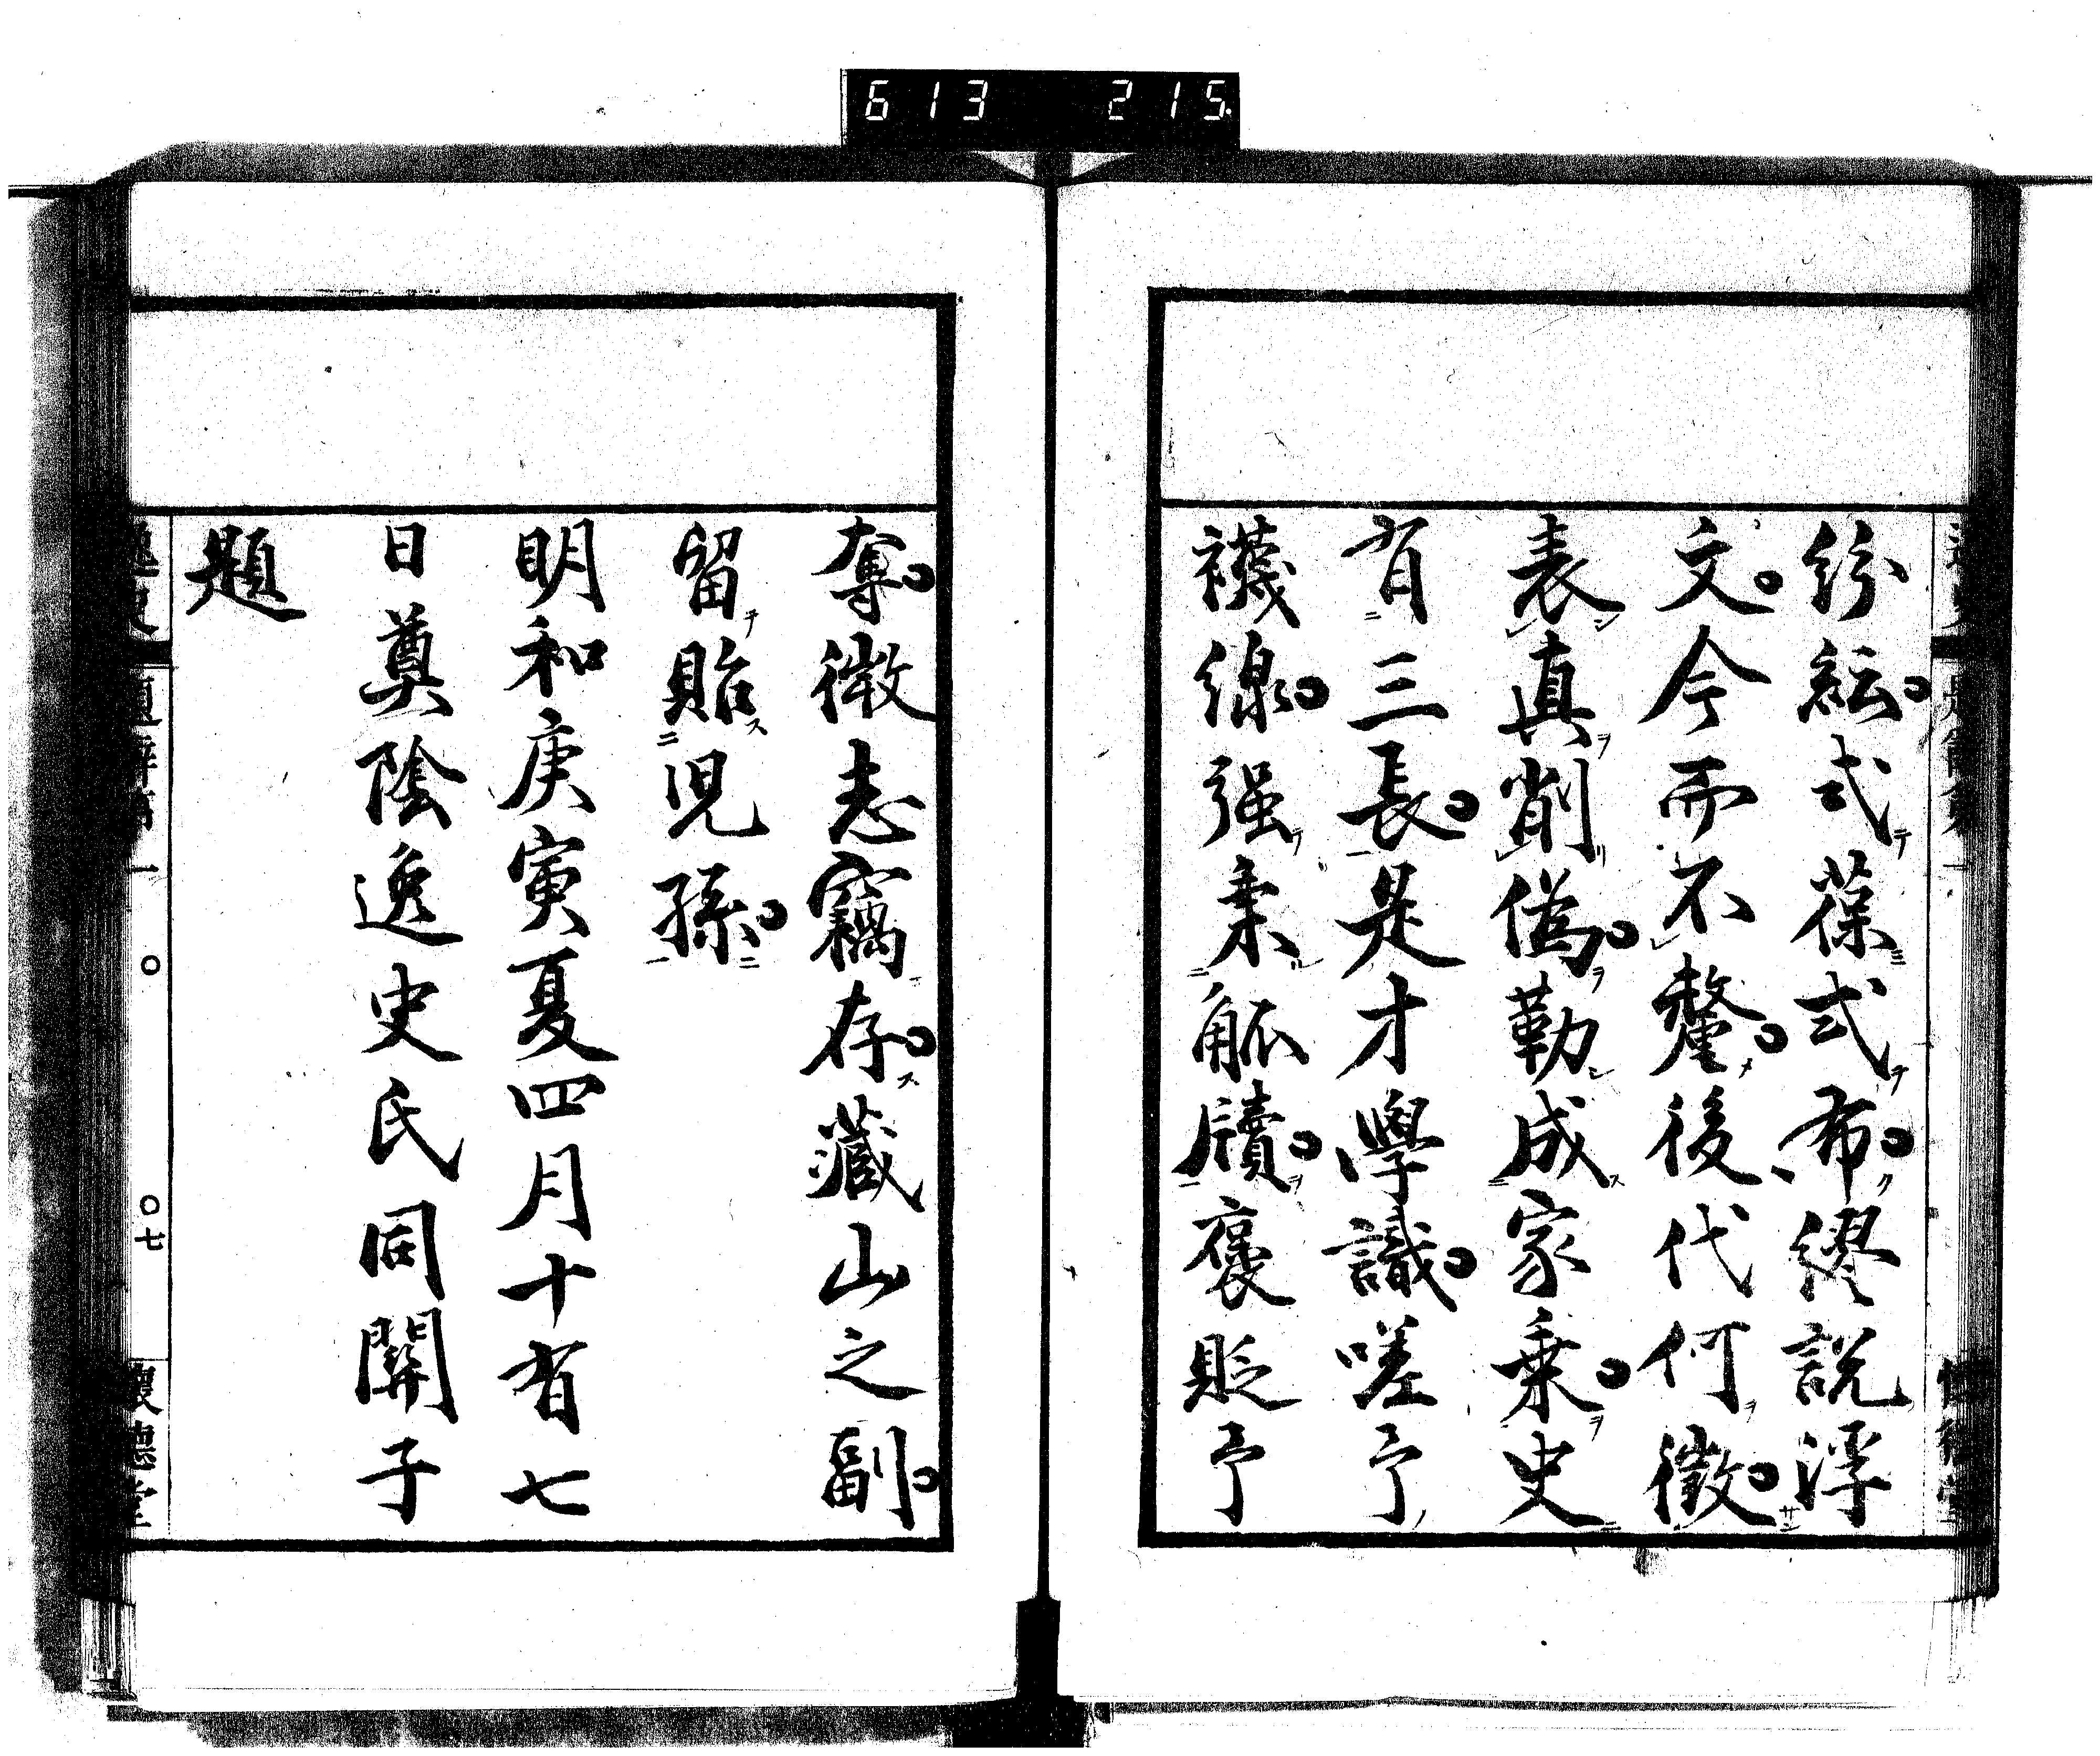 613 215
紛紜式葆式布繆説浮
文今而不釐後代何徴
表真削偽勒成家乗史
有三長是才學識嗟予
襪線强秉觚牘褒貶予
奪微志竊存藏山之副
留貽児孫
明和庚寅夏四月十有七
日奠陰逸史氏同関子
題
逸史
題辞
一
〇
〇七
懐德堂